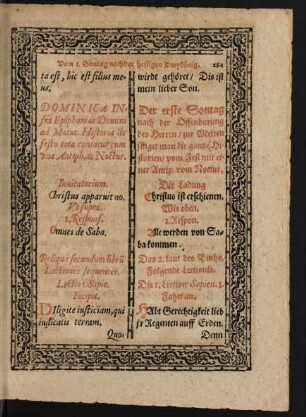 Vom 1. Sontag nach der heiligen Dreykönig. 284
ta est, hic est filius me-
us.
DOMINICA IN-
fra Epiphanias Domini
ad Matut. Historia de
festo tota cantatur cum
vna Antiph. de Noctur.
Inuitatorium.
Christus apparuit no.
Vt supra.
1. Respons.
Omnes de Saba.
Reliqua secundum librũ
Lectiones sequentes.
Lectio 1. Sapie.
Incipit.
DIligite iusticiam, qui
iudicatis terram,
Quo-
wirdt gehöret / Dis ist
mein lieber Son.
Der erste Sontag
nach der Offenbarung
des Herren / zur Metten
singet man die gantze Hi-
storien / vom Fest mit ei-
ner Antip. vom Noctur.
Die Ladung
Christus ist erschienen.
Wie oben.
1. Respon.
Alle werden von Sa-
ba kommen.
Das 2. laut des Buchs.
Folgende Lectiones.
Die 1. Lection Sapien. 1
Fahet an.
HAbt Gerechtigkeit lieb
jr Regenten auff Erden.
Denn